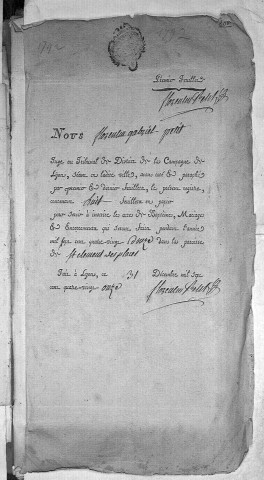 Premier Feuillet
florentin Petit
NOUS florentin gabriel petit
Juge au Tribunal de District de la Campagne de
Lyon, séant en ladite ville, avons coté & paraphé
par premier & dernier feuillet, le présent registre,
contenant huit feuillets en papier
pour servir à inscrire les actes de Baptêmes, Mariages
& Enterremens qui seront faits pendant l'année
mil sept cent quatre-vingt douze dans la paroisse
de st clement sur valsonne
Fait à Lyon, ce 31 Décembre mil sept
cent quatre-vingt onze
florentin Petit